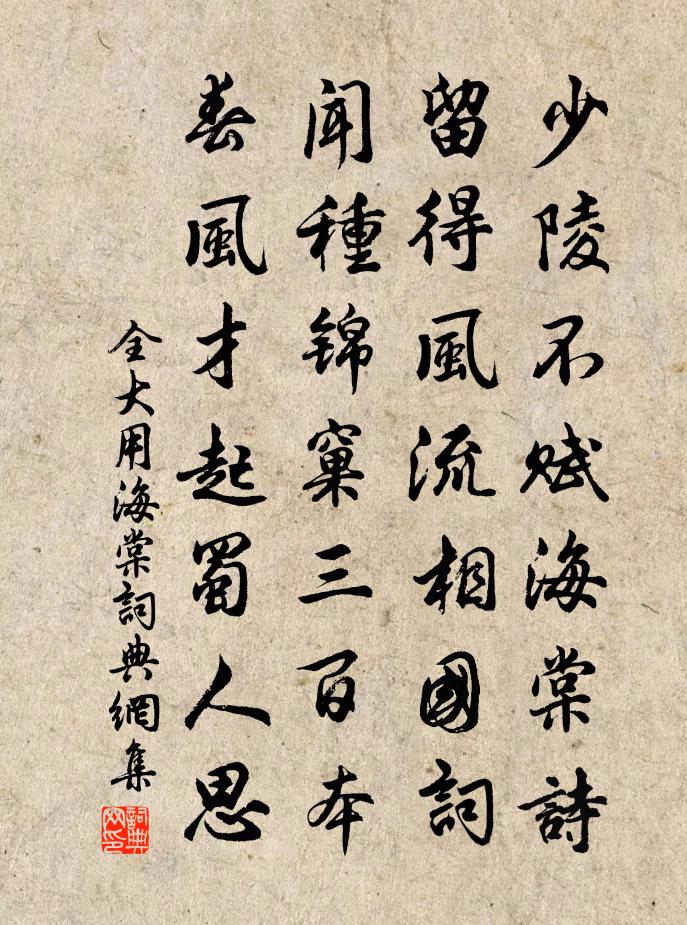 少陵不赋海棠詩
留得風流相國詞
闻種锦窠三百本
春風才起蜀人思
全大用海棠詞典網集
詞典網印